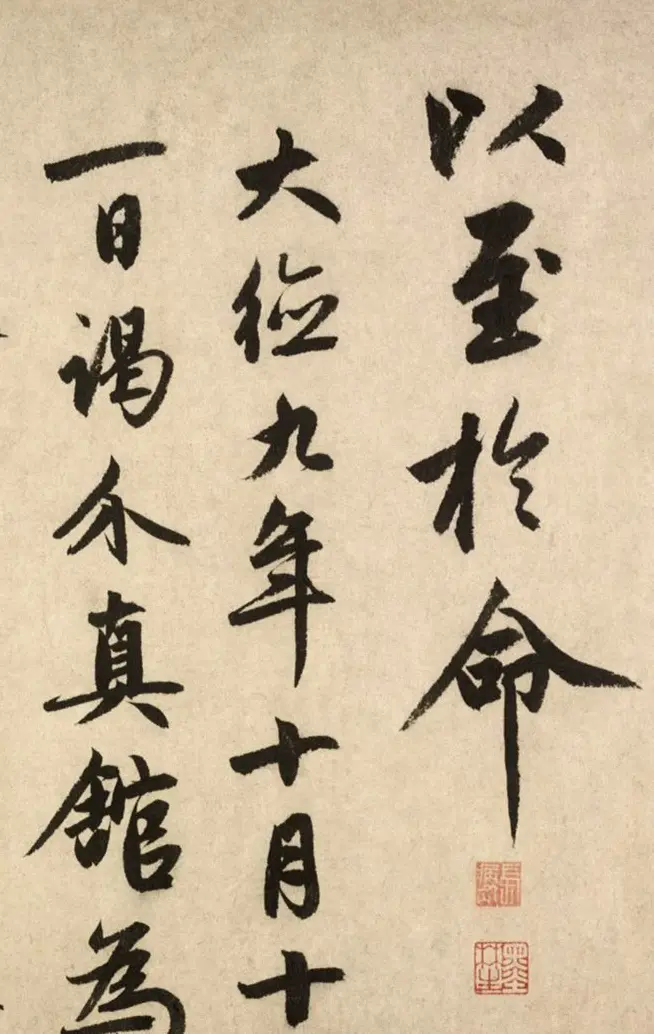 以至於命
大德九年十月十
一日謁介真館為